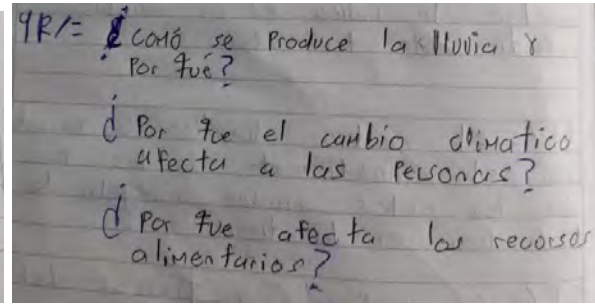 9R/= ¿ comó se Produce la lluvia y
Por qué?
¿ Por que el cambio climatico
afecta a las Personas?
¿ Por que afecta los recorsos
alimentarios?